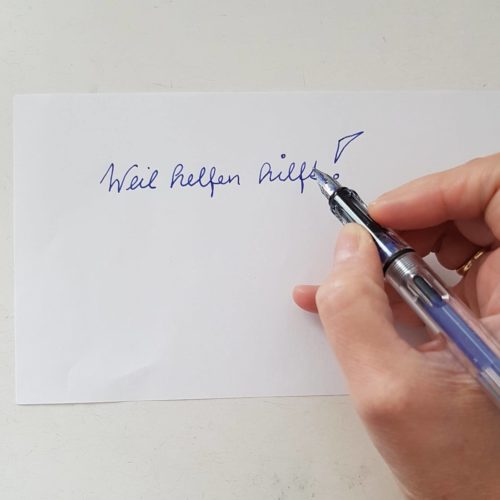 Weil helfen hilft!